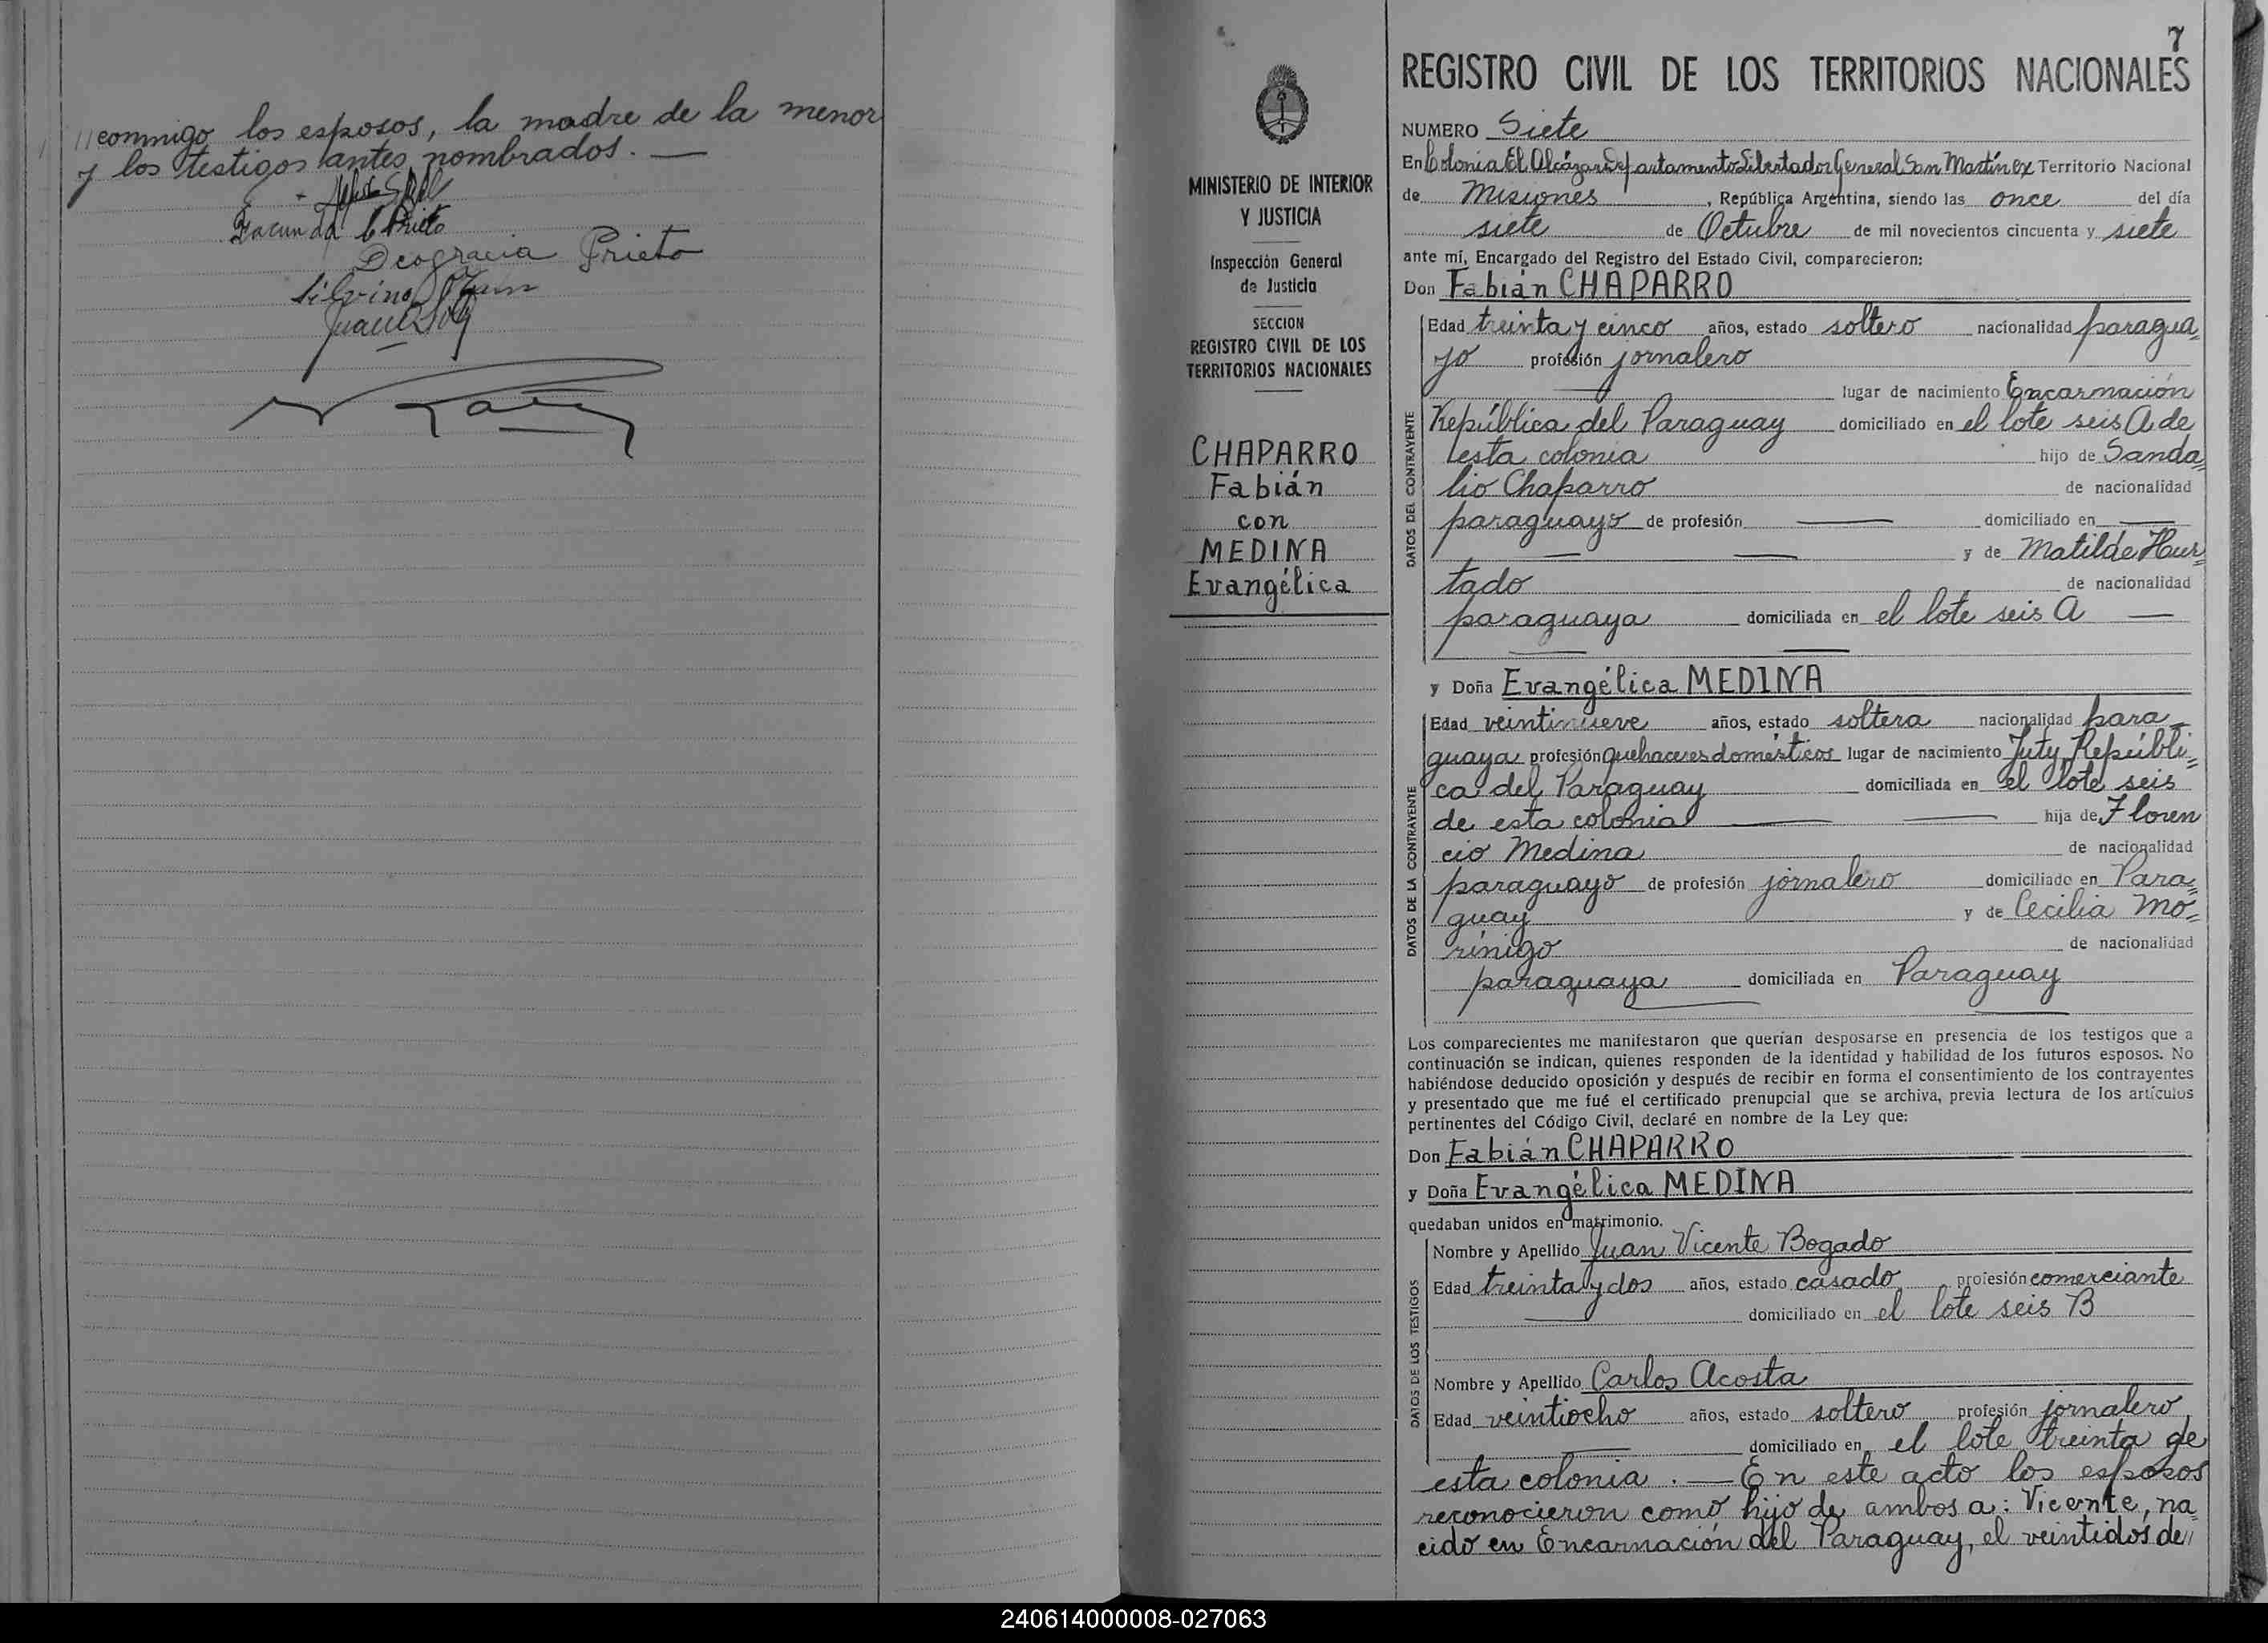 //conmigo los esposos, la madre de la menor
y los testigos antes nombrados. —
Facunda C Prieto
Deogracia Prieto
Silvino
7
REGISTRO CIVIL DE LOS TERRITORIOS NACIONALES
MINISTERIO DE INTERIOR
Y JUSTICIA
Inspección General
de Justicia
SECCION
REGISTRO CIVIL DE LOS
TERRITORIOS NACIONALES
CHAPARRO
Fabián
con
MEDINA
Evangélica
NUMERO Siete
En Colonia El Alcázar Departamento Libertador General San Martín Territorio Nacional
de Misiones, República Argentina, siendo las once del día
siete de Octubre de mil novecientos cincuenta y siete
ante mí, Encargado del Registro del Estado Civil, comparecieron:
Don Fabián CHAPARRO
DATOS DEL CONTRAYENTE
Edad treinta y cinco años, estado soltero nacionalidad paragua=
yo profesión jornalero
lugar de nacimiento Encarnación
República del Paraguay domiciliado en el lote seis A de
esta colonia hijo de Sanda=
lio Chaparro de nacionalidad
paraguayo de profesión — domiciliado en —
— — y de Matilde Hur=
tado de nacionalidad
paraguaya domiciliada en el lote seis A —
y Doña Evangélica MEDINA
DATOS DE LA CONTRAYENTE
Edad veintinueve años, estado soltera nacionalidad para=
guaya profesión quehaceres domésticos lugar de nacimiento Yuty, Repúbli=
ca del Paraguay domiciliada en el lote seis
de esta colonia — — hija de Floren
cio Medina de nacionalidad
paraguayo de profesión jornalero domiciliado en Para=
guay y de Cecilia Mo=
rínigo de nacionalidad
paraguaya domiciliada en Paraguay
Los comparecientes me manifestaron que querían desposarse en presencia de los testigos que a
continuación se indican, quienes responden de la identidad y habilidad de los futuros esposos. No
habiéndose deducido oposición y después de recibir en forma el consentimiento de los contrayentes
y presentado que me fué el certificado prenupcial que se archiva, previa lectura de los artículos
pertinentes del Código Civil, declaré en nombre de la Ley que:
Don Fabián CHAPARRO
y Doña Evangélica MEDINA
quedaban unidos en matrimonio.
DATOS DE LOS TESTIGOS
Nombre y Apellido Juan Vicente Bogado
Edad treinta y dos años, estado casado profesión comerciante
domiciliado en el lote seis B
Nombre y Apellido Carlos Acosta
Edad veintiocho años, estado soltero profesión jornalero
— domiciliado en el lote treinta de
esta colonia. — En este acto los esposos
reconocieron como hijo de ambos a: Vicente, na
cido en Encarnación del Paraguay, el veintidós de//
240614000008-027063